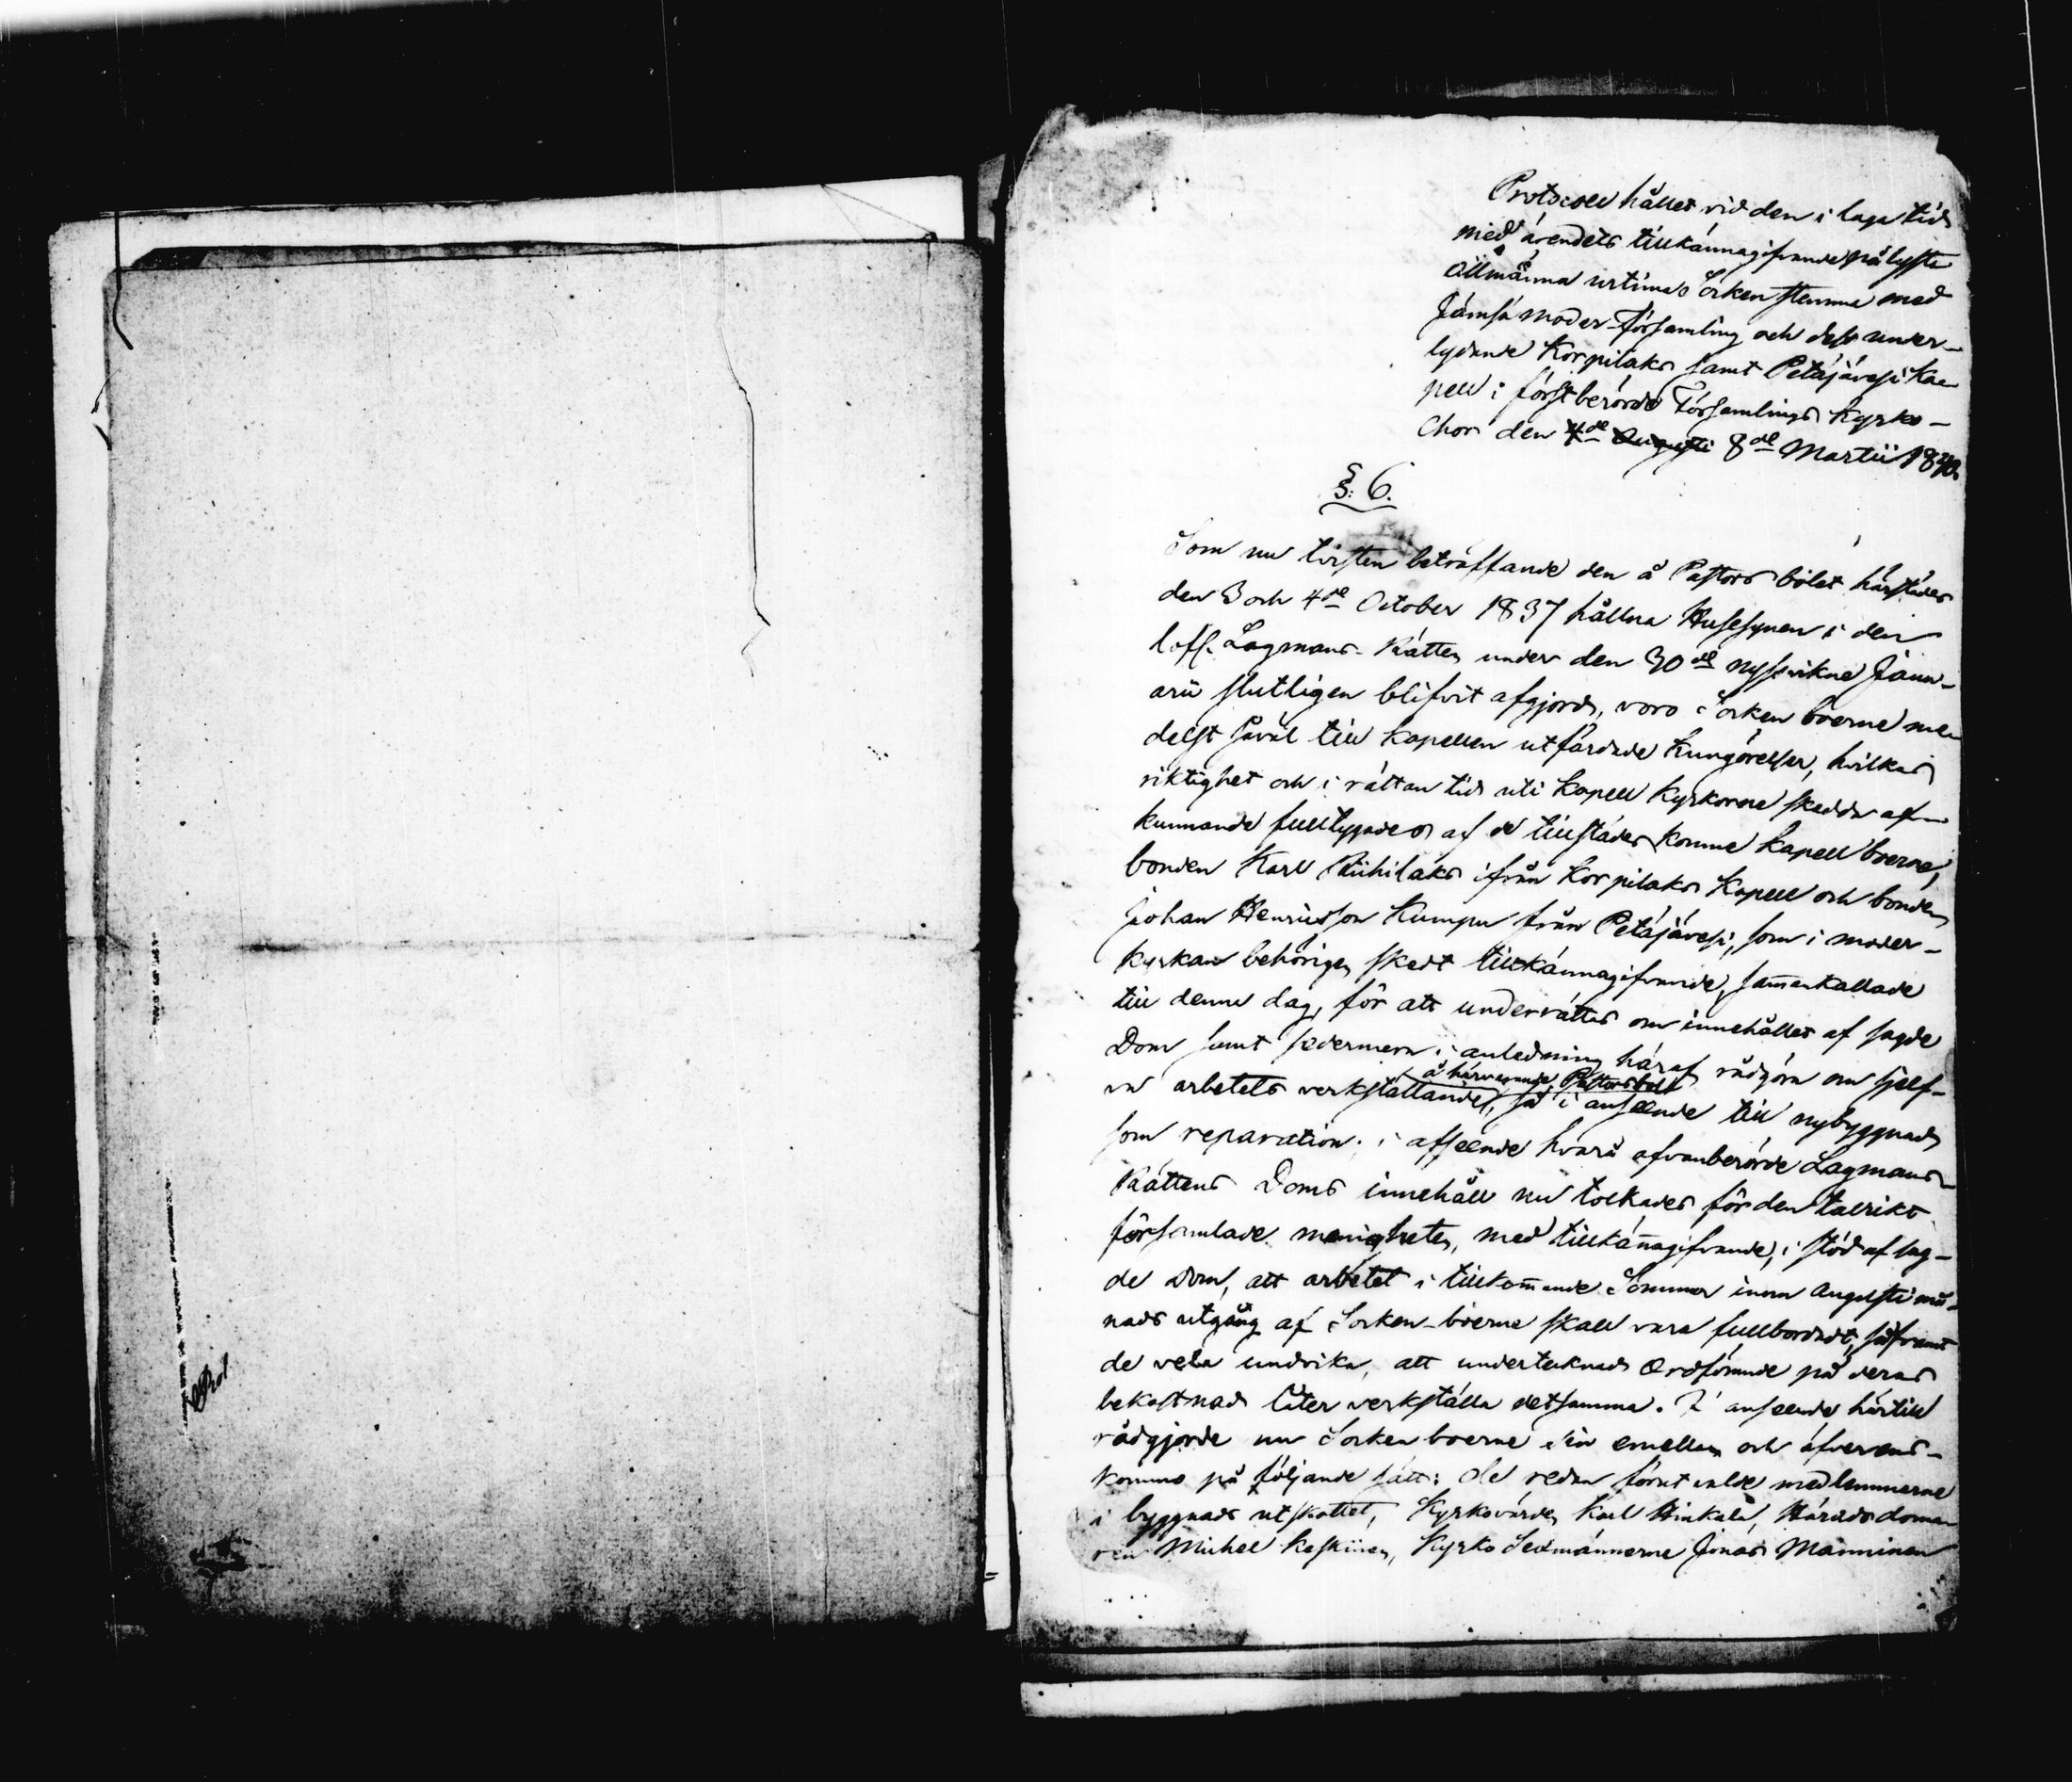 Protocoll hållet vid den i laga tid
med ärendets tillkännagifvande pålyste
Allmänna urtima Socken stemma med
Jämsä moder-Församling och dess under-
lydande Korpilaks samt Petäjävesi Ka-
pell i förstberörde Församlings Kyrko-
Chor den 4de Augusti 8de Martii 1840.
§. 6.
Som nu tvisten beträffande den å Pastors bolet härstädes
den 3 och 4de October 1837 hållna Husesynen i den
lofl. Lagmans-Rätten under den 30de nyssvikne Janu-
arii slutligen blifvit afgjord, voro Sockenboerne me-
delst såväl till Kapellen utfärdade Kungörelser, hvilkas
riktighet och i rättan tid uti Kapell Kyrkorne skedda af-
kunnande fulltygades af de tillstädes komne Kapellboerne,
bonden Karl Riihilaks ifrån Korpilaks Kapell och bonden
Johan Henriksson Kumpu från Petäjävesi, som i moder-
kyrkan behörigen skedt tillkännagifvande, sam̄ankallade
till denna dag, för att underrättas om innehållet af sagde
Dom samt sedermera i anledning häraf rådgöra om sjelf-
va arbetets verkställande, så i anseende till nybyggnad
å härvarande Pastorsbol
som reparation. i afseende hvarå ofvanberörde Lagmans-
Rättens Doms innehåll nu tolkades för den talrikt
församlade menigheten, med tillkän̄agifvande, i stöd af sag-
de Dom, att arbetet i tillkom̄ande Sommar inom Augusti må-
nads utgång af Socken-boerne skall vara fullbordadt, såframt
de vela undvika, att undertecknad Ordförande på deras
bekostnad låter verkställa detsamma. I anseende härtill
rådgjorde nu Sockenboerne sin emellan och öfverens-
kommo på följande sätt: de redan förut valde medlemmarne
i byggnads utskottet, Kyrkovärden Karl Hinkala, Häradsdoma-
ren Michel Keskinen, Kyrko Sexmännerne Jonas Männinen
Prot